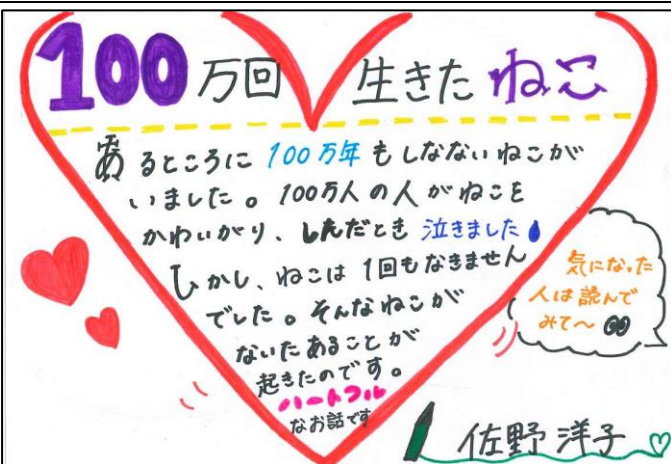 100万回生きたねこ
あるところに100万年もしなないねこが
いました。100万人の人がねこを
かわいがり、しんだとき泣きました
しかし、ねこは1回もなきません
でした。そんなねこが
ないたあることが
起きたのです。
ハートフル
なお話です
気になった
人は読んで
みて〜
佐野洋子